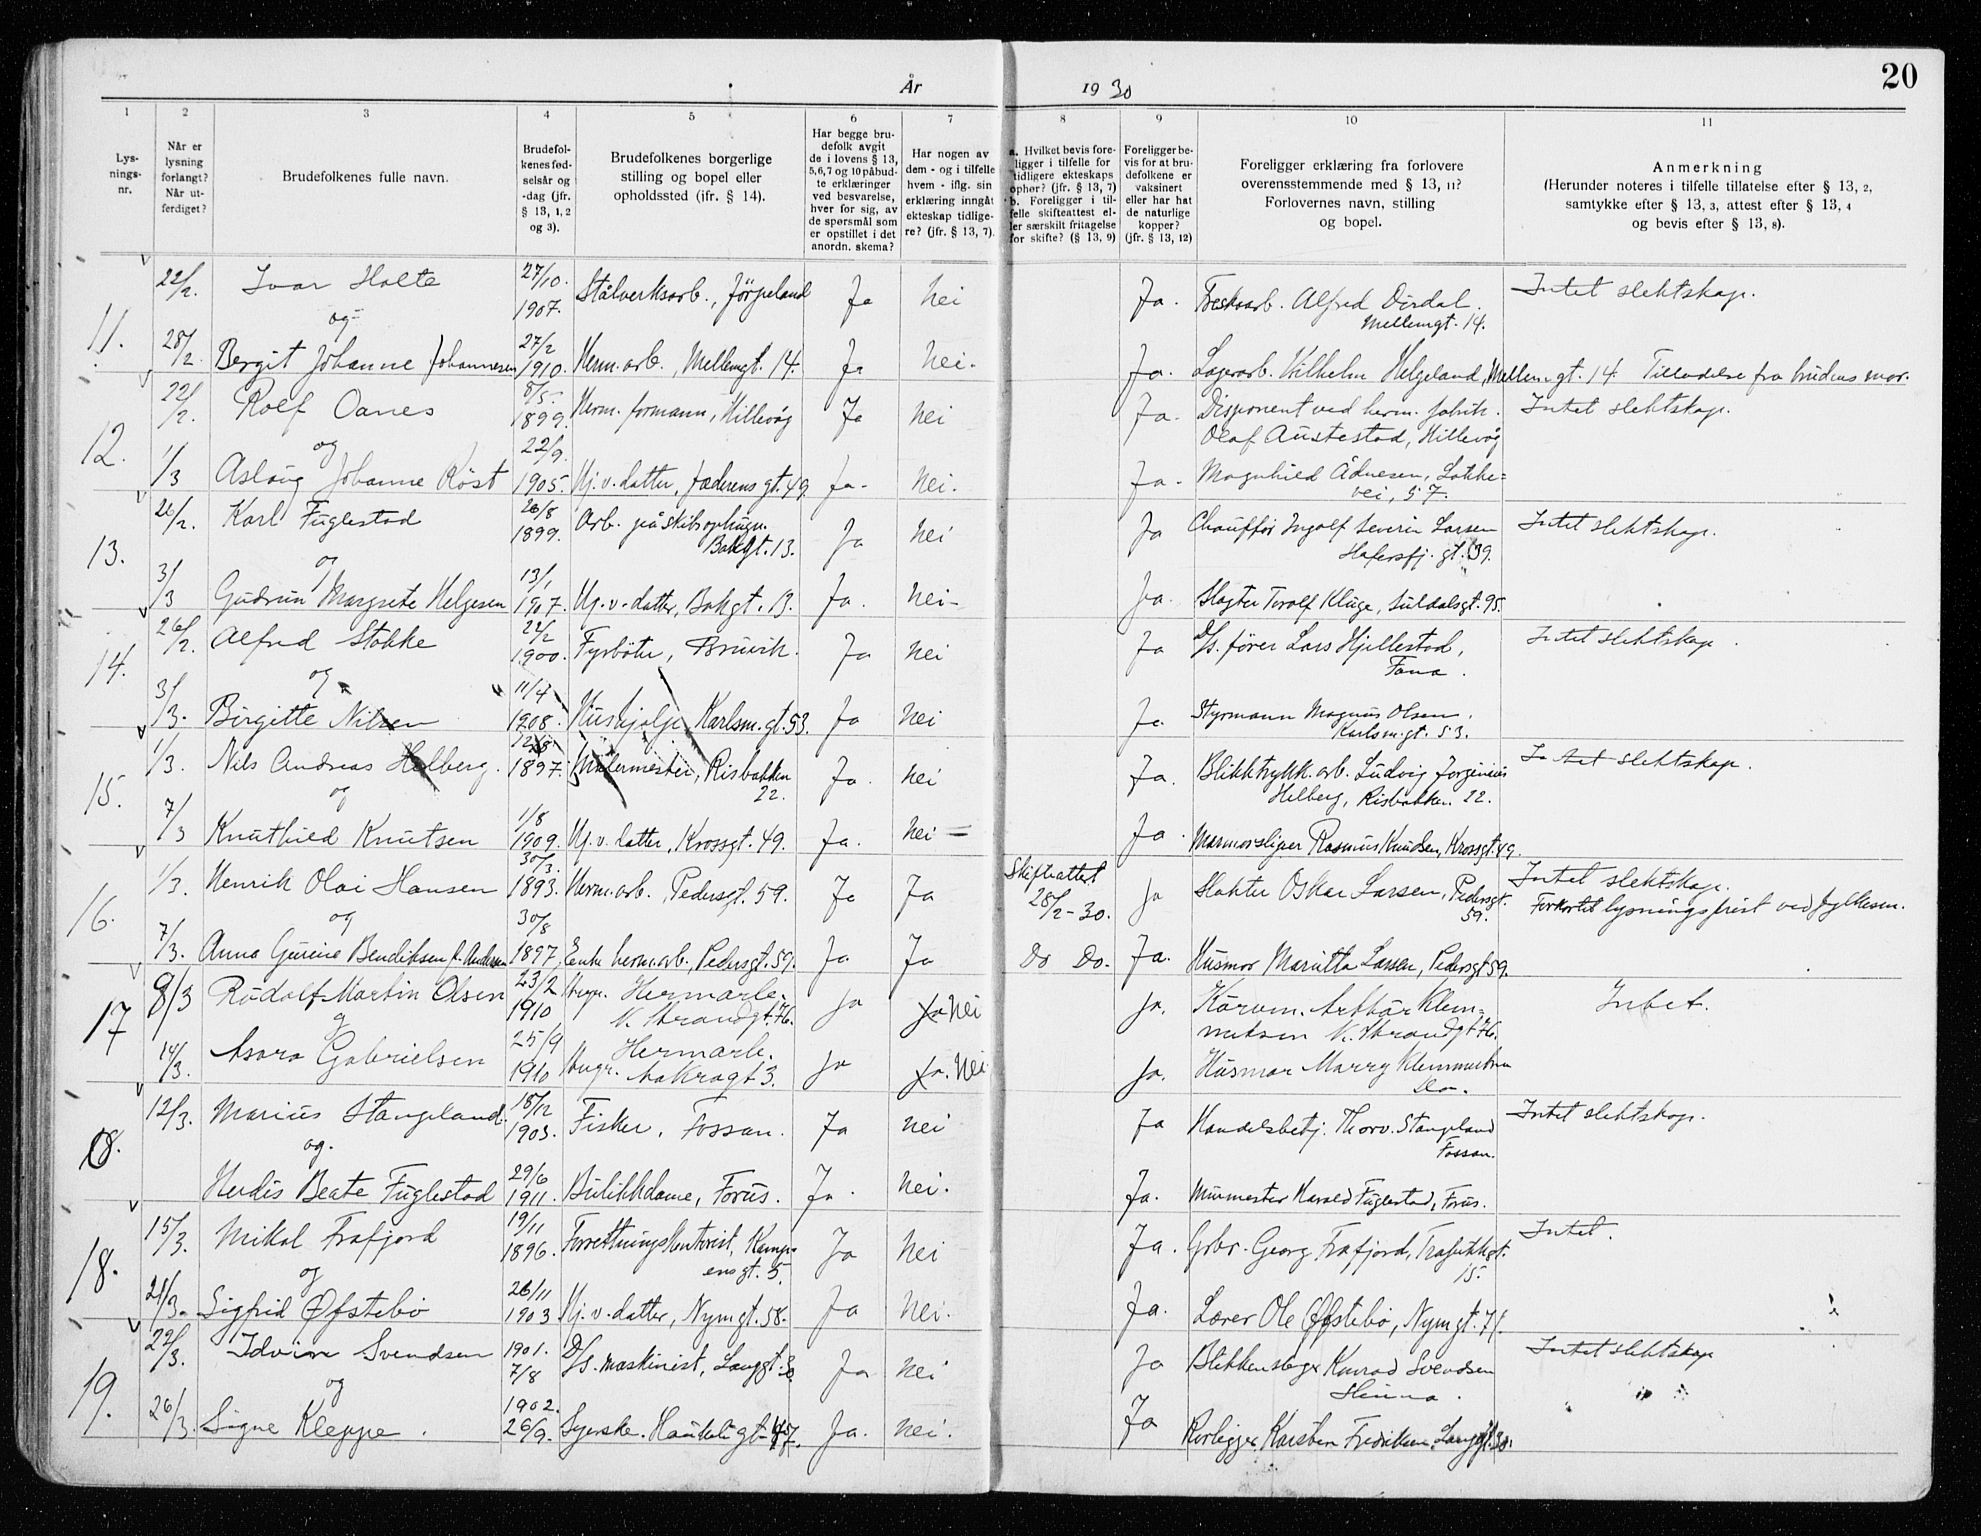 20
År 1930
1 2 3 4 5 6 7 8 9 10 11
Lysningsnr.
Når er lysning forlangt? Når utferdiget?
Brudefolkenes fulle navn.
Brudefolkenes fødselsår og -dag (jfr. § 13, 1, 2 og 3).
Brudefolkenes borgerlige stilling og bopel eller opholdssted (jfr. § 14).
Har begge brudefolk avgit de i lovens § 13, 5,6,7 og 10 påbudte erklæringer ved besvarelse, hver for sig, av de spørsmål som er opstillet i det anordn. skema?
Har nogen av dem - og i tilfelle hvem - iflg. sin erklæring inngåt ekteskap tidligere? (jfr. § 13, 7).
a. Hvilket bevis foreligger i tilfelle for tidligere ekteskaps ophør? (jfr. § 13, 7) b. Foreligger i tilfelle skifteattest eller særskilt fritagelse for skifte? (§ 13, 9)
Foreligger bevis for at brudefolkene er vaksinert eller har hat de naturlige kopper? (jfr. § 13, 12)
Foreligger erklæring fra forlovere overensstemmende med § 13, 11? Forlovernes navn, stilling og bopel.
Anmerkning (Herunder noteres i tilfelle tillatelse efter § 13, 2, samtykke efter § 13, 3, attest efter § 13, 4 og bevis efter § 13, 8).
22/2. Ivar Holte 27/10. 1907. Stålverksarb., Jörpeland Ja Nei Ja. Alfred Dirdal. Mellemgt. 14. Intet slektskap.
11. og
28/2. Bergit Johanne Johannesen 27/2 1910. Herm. arb., Mellemgt. 14. Ja Nei. Ja. Lagerarb. Vilhelm Helgeland, Mellemgt. 14. Tilladelse fra brudens mor.
22/2. Rolf Oanes 8/5. 1899. Herm. formann, Hillevåg Ja Nei Ja. Disponent ved herm. fabrik. Olaf Austestad, Hillevåg Intet slektskap.
12. og
1/3 Aslaug Johanne Köst 22/9. 1905. Hj. v. datter, Jæderens gt. 49. Ja. Nei. Ja. Magnhild Ådnesen, Løkkevei, 57.
26/2. Karl Fuglestad 26/8 1899. Arb. på skibsophugn. Bakgt. 13. Ja Nei Ja Chauffør Ingolf Severin Larsen Hafersfj. gt. 39. Intet slektskap.
13. og
3/3 Gudrun Margrete Helgesen 13/1 1907. Hj. v. datter, Bakgt. 13. Ja. Nei- Ja. Slagter Torolf Kluge, Suldalsgt. 95.
26/2. Alfred Stokke 22/2 1900. Fyrböter, Bruvik. Ja Nei Ja D/s. fører Lars Hjellestad, Fana. Intet slektskap.
14. og
3/3. Birgitte Nilsen 11/4 1908. Hushjelp, Karlsm. gt. 53. Ja Nei Ja. Styrmann Magnus Olsen. Karlsm. gt. 53.
1/3. Nils Andreas Helberg. 1897. Malermester, Risbakken 22. Ja. Nei Ja. Blikktrykk. arb. Ludvig Jorginius Helberg, Risbakken. 22. Intet slektskap.
15. og
7/3 Knuthild Knutsen 1/8 1909. Hj. v. datter, Krossgt. 49. Ja. Nei- Ja. Marmorsliper Rasmus Knudsen, Krossgt 49.
1/3. Henrik Olai Hansen 30/3. 1893. Herm. arb., Pedersgt. 59. Ja Ja Skifteattest 28/2-30. Ja Slakter Oskar Larsen, Pedersgt. 59. Intet slektskap. Forkortet lysningsfrist ved fylkesm.
16. og
7/3. Anna Gurine Bendiksen f. Andersen 30/8 1897. Enke herm. arb., Pedersgt. 59. Ja Ja Do Do. Ja. Husmor Maritta Larsen, Pedersgt 59.
8/3 Rudolf Martin Olsen 23/2 1910 Ungr. Hermarb. N. Strandgt. 76. Ja Ja Nei Ja. Kårum. Arthur Klemmetsen N. Strandgt 76. Intet.
17 og
14/3. Asora Gabrielsen 25/9 1910 Ungr. Hermarb. Aakragt 3. Ja Ja. Nei Ja. Husmor Marry Klemmetsen Do.
12/3. Marius Stangeland. 18/12 1903. Fisker, Fossan. Ja Nei Ja Handelsbetj. Thorv. Stangeland Fossan. Intet slektskap.
18. og.
Herdis Beate Fuglestad 29/6 1911. Butikkdame, Forus. Ja. Nei. Ja. Murmester Harald Fuglestad, Forus.
15/3. Mikal Frafjord 19/11 1896. Forretningskontorist, Kampensgt. 5. Ja Nei Ja. Grbr. Georg Frafjord, Trafikkgt. 15. Intet.
18. og
21/3. Sigfrid Øfstebö 26/11 1903 Hj. v. datter, Nymgt. 58. Ja Nei. Ja. Lærer Ole Øfstebö, Nymgt. 71.
22/3. Edvin Svendsen 1901. 7/8 D/s. maskinist, Langgt. 30. Ja Nei Ja Blikkenslager Konrad Svendsen Hinna. Intet slektskap
19. og
26/3. Signe Kleppe. 1902. 26/9. Syerske. Haukeligt 47. Ja. Nei. Ja Rørlegger Karsten Fredriksen, Langgt. 30. " " "